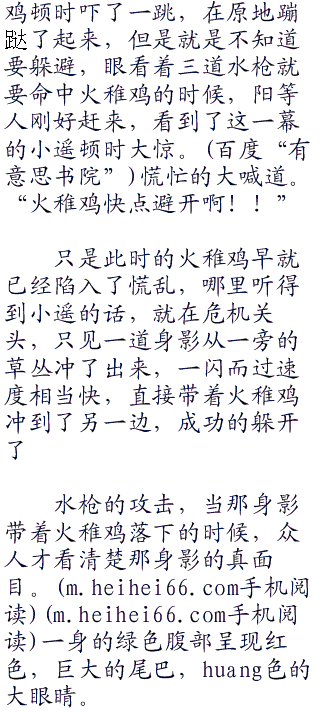 鸡顿时吓了一跳，在原地蹦
跶了起来，但是就是不知道
要躲避，眼看着三道水枪就
要命中火稚鸡的时候，阳等
人刚好赶来，看到了这一幕
的小遥顿时大惊。(百度“有
意思书院”)慌忙的大喊道。
“火稚鸡快点避开啊！！”
只是此时的火稚鸡早就
已经陷入了慌乱，哪里听得
到小遥的话，就在危机关
头，只见一道身影从一旁的
草丛冲了出来，一闪而过速
度相当快，直接带着火稚鸡
冲到了另一边，成功的躲开
了
水枪的攻击，当那身影
带着火稚鸡落下的时候，众
人才看清楚那身影的真面
目。(m.heihei66.com手机阅
读)(m.heihei66.com手机阅
读)一身的绿色腹部呈现红
色，巨大的尾巴，huang色的
大眼睛。